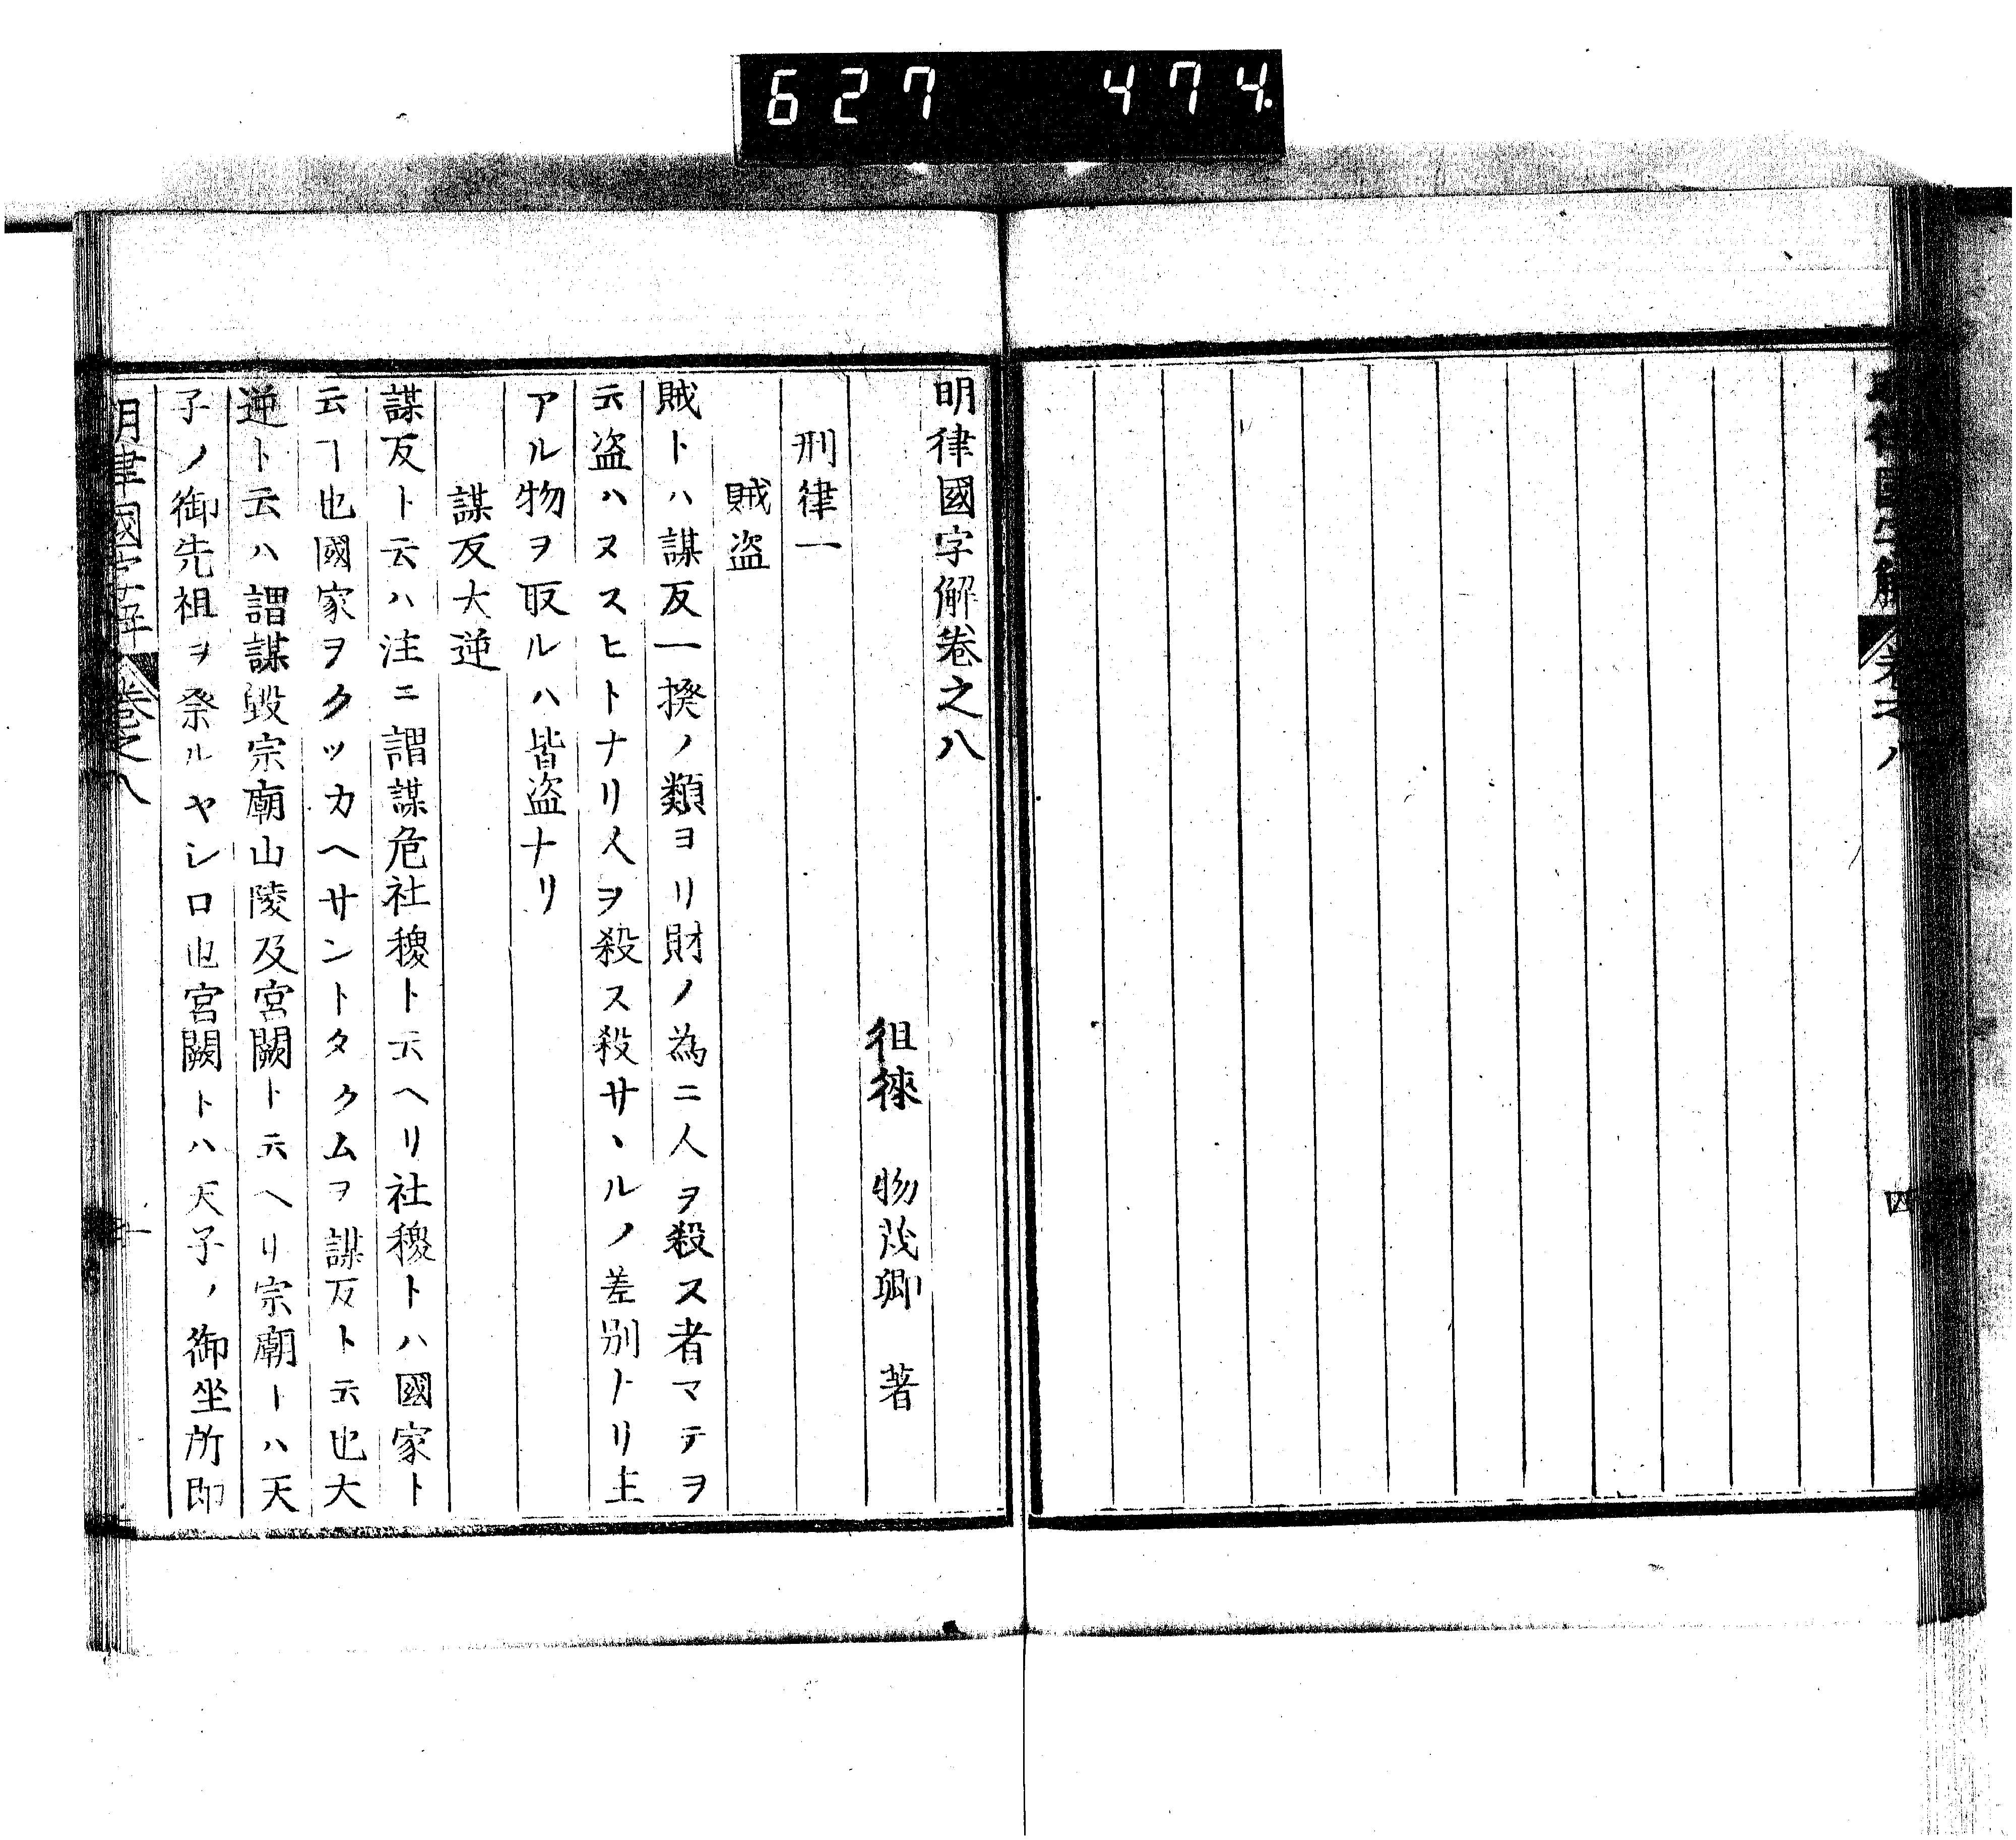 627 474
四
明律國字解卷之八
徂徠 物茂卿 著
刑律一
賊盗
賊トハ謀反一揆ノ類ヨリ財ノ為ニ人ヲ殺ス者マテヲ
云盗ハヌスヒトナリ人ヲ殺ス殺サヽルノ差別トリ主
アル物ヲ取ルハ皆盗ナリ
謀反大逆
謀反ト云ハ注ニ謂謀危社稷ト云ヘリ社稷トハ國家ト
云ヿ也國家ヲクツカヘサントタクムヲ謀反ト云也大
逆ト云ハ謂謀毀宗廟山陵及宮闕ト云ヘリ宗廟トハ天
子ノ御先祖ヲ祭ルヤシロ也宮闕トハ天子ノ御坐所即
卷之八
一